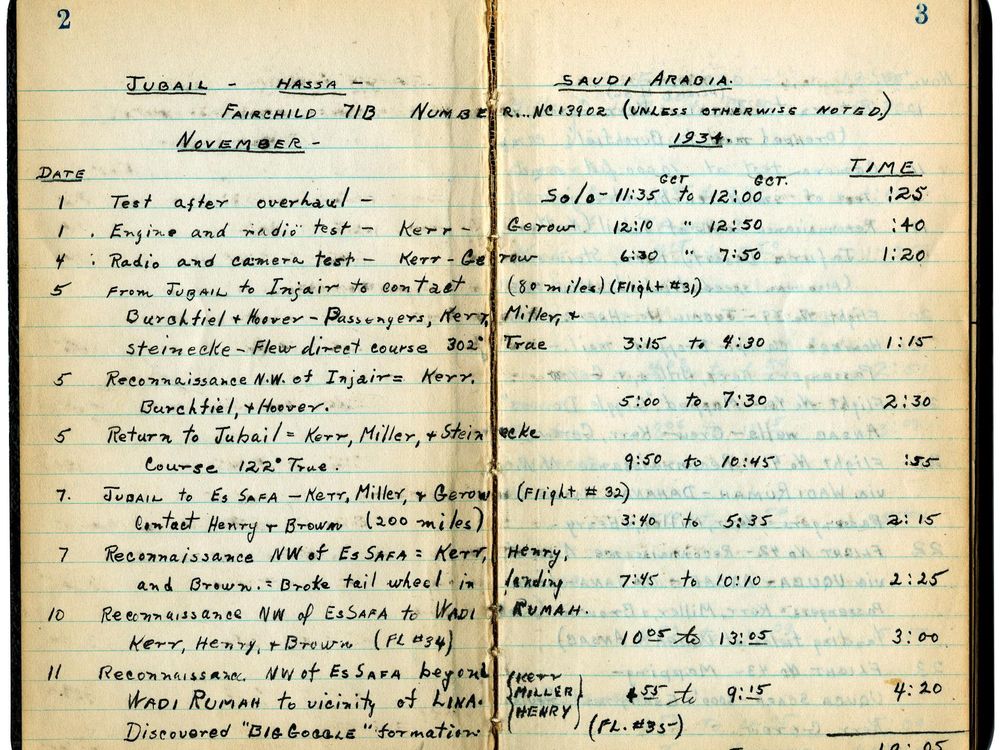 2 3
JUBAIL - HASSA - SAUDI ARABIA.
FAIRCHILD 71B NUMBER...NC13902 (UNLESS OTHERWISE NOTED.)
NOVEMBER - 1934.
DATE TIME
GCT GCT.
1 Test after overhaul - Solo - 11:35 to 12:00 :25
1 . Engine and radio test - Kerr - Gerow 12:10 " 12:50 :40
4 : Radio and camera test - Kerr - Gerow 6:30 " 7:50 1:20
5 From JUBAIL to Injair to contact (80 miles) (Flight #31)
Burchfiel + Hoover - Passengers, Kerr, Miller, +
Steinecke - Flew direct course 302° True 3:15 to 4:30 1:15
5 Reconnaissance N.W. of Injair = Kerr.
Burchfiel, + Hoover. 5:00 to 7:30 2:30
5 Return to Jubail = Kerr, Miller, + Steinecke
Course 122° True. 9:50 to 10:45 :55
7. JUBAIL to Es SAFA - Kerr, Miller, + Gerow (Flight # 32)
Contact Henry + Brown (200 miles) 3:40 to 5:35 2:15
7 Reconnaissance NW of Es SAFA = Kerr, Henry,
and Brown. = Broke tail wheel in landing 7:45 to 10:10 - 2:25
10 Reconnaissance NW of EsSAFA to WADI RUMAH.
Kerr, Henry, + Brown (FL #34) 10 05 to 13:05 3:00
11 Reconnaissance NW of EsSAFA beyond {Kerr
WADI RUMAH to vicinity of LINA. MILLER 4 55 to 9:15 4:20
HENRY}
Discovered "BIG GOGGLE" formation (FL. #35-)